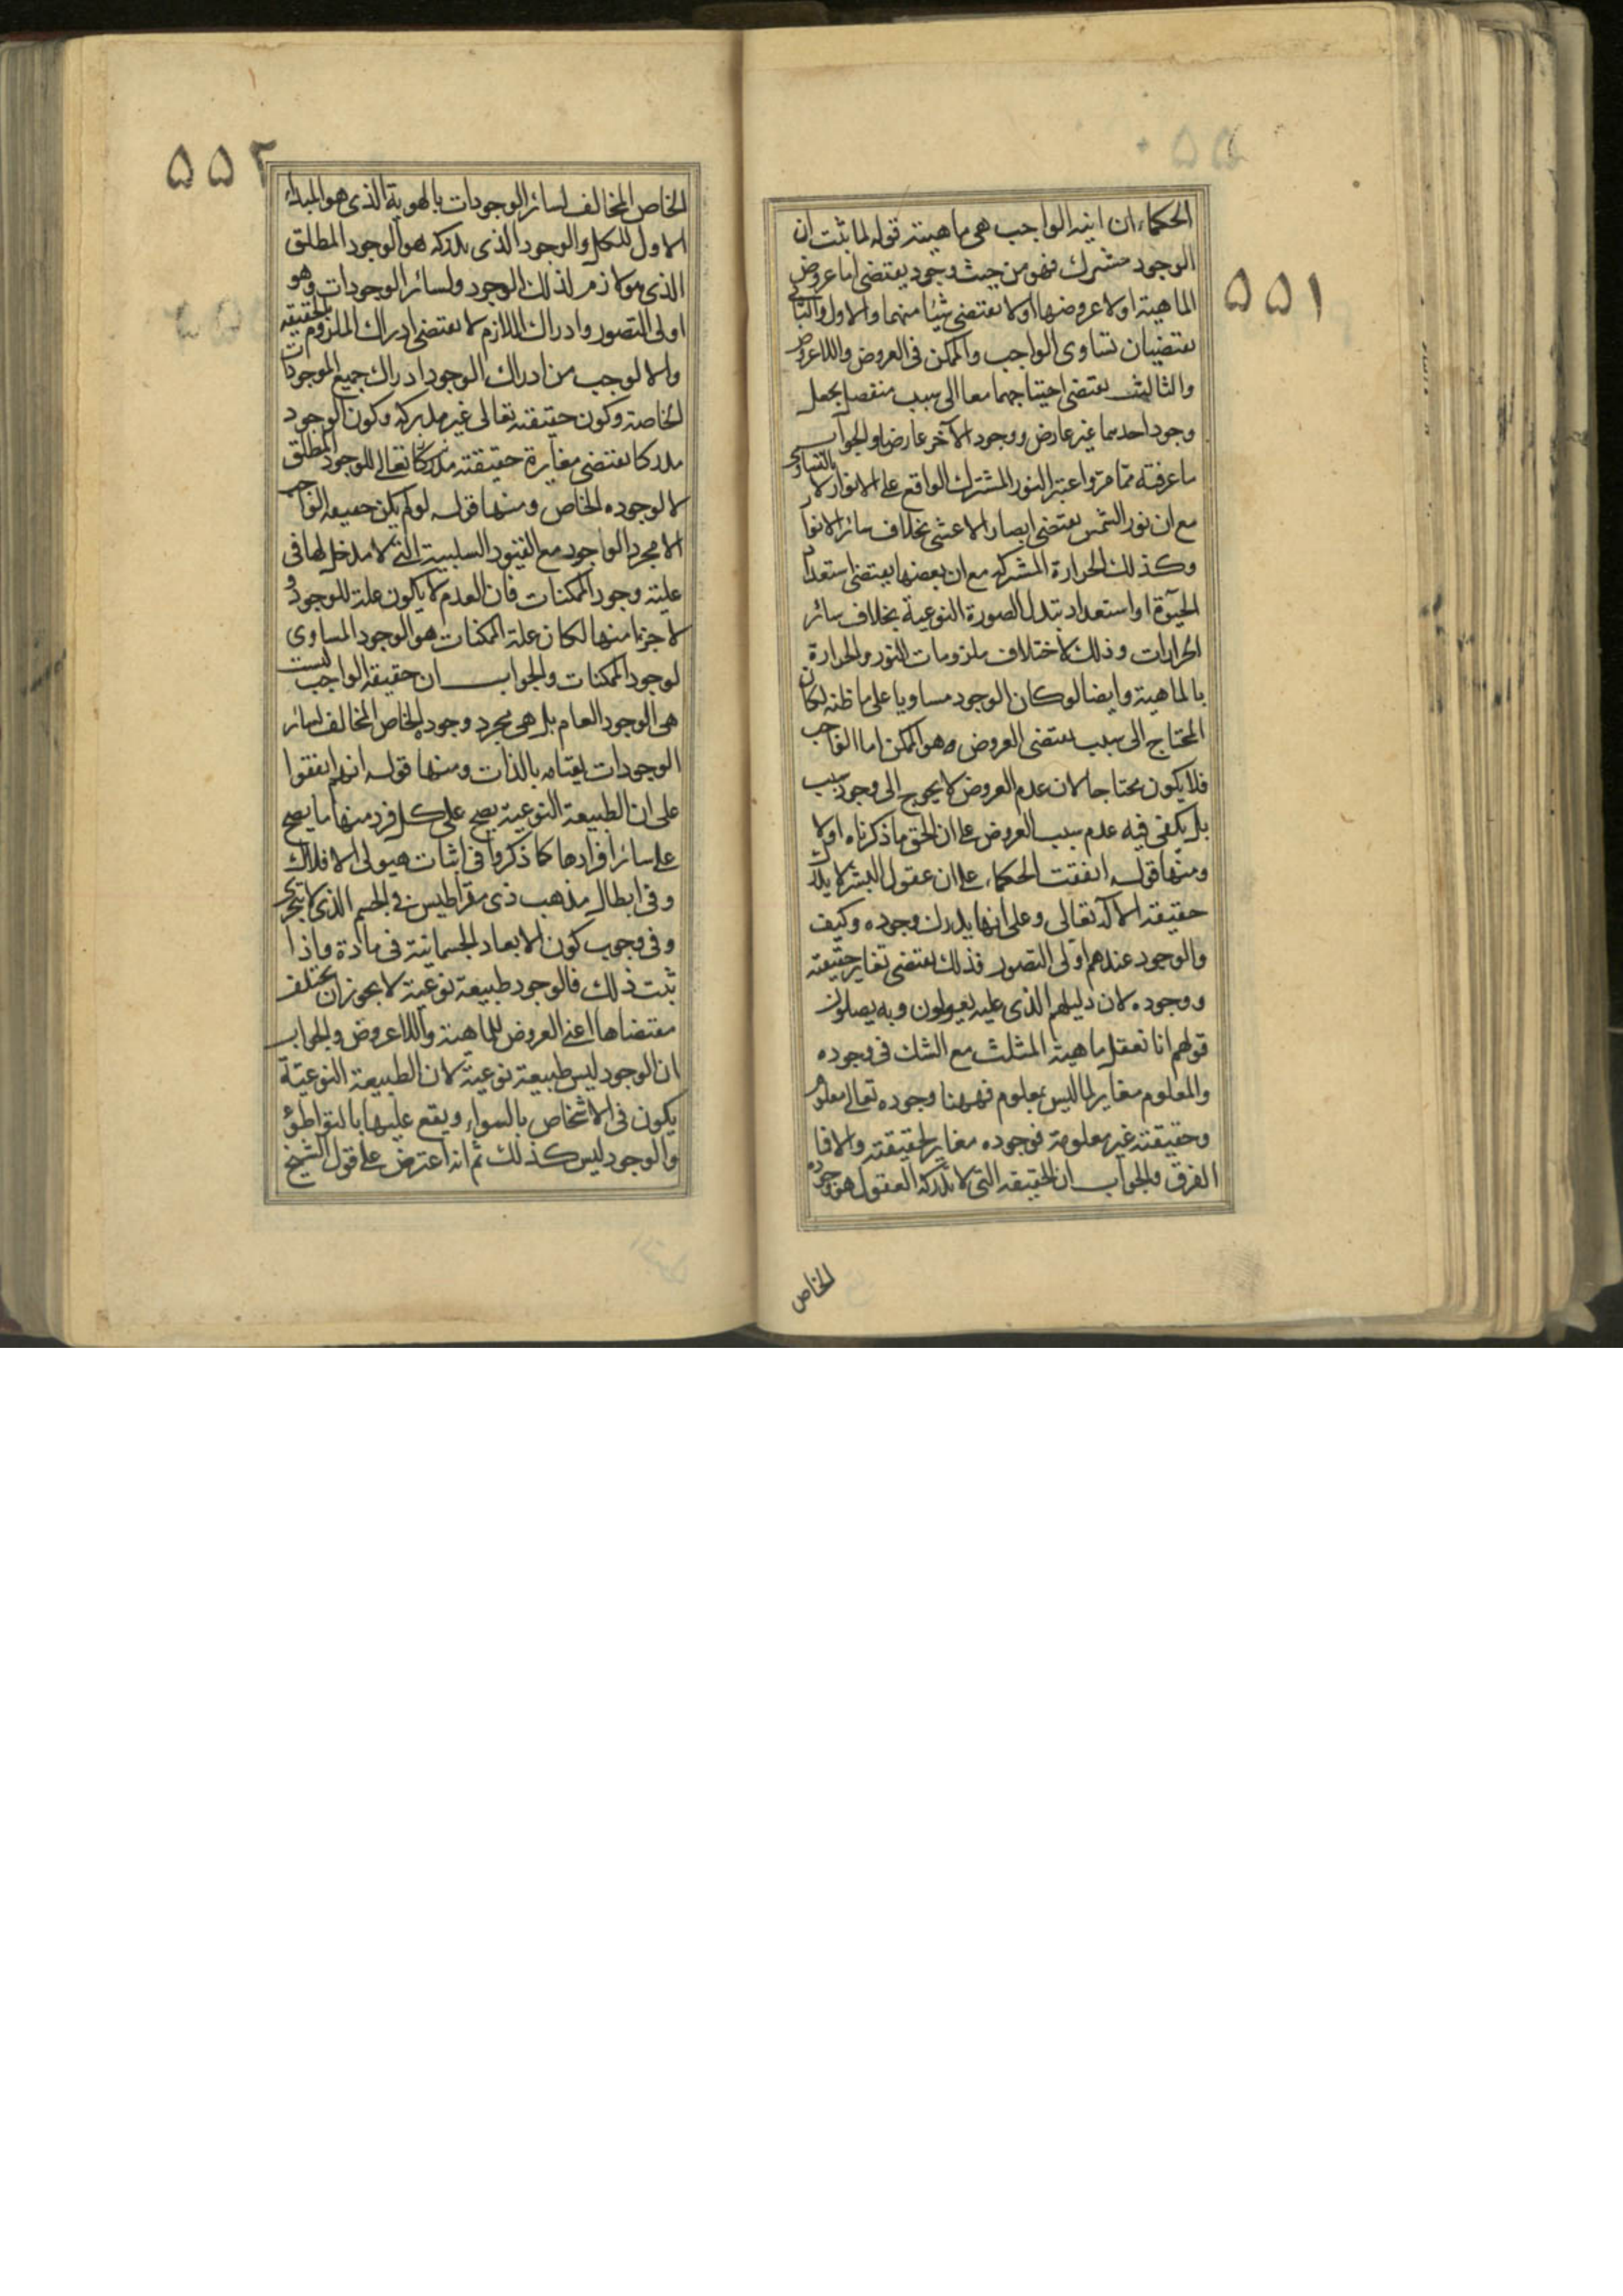 ٥٥١
الحكماء ان انية الواجب هى ماهيته قوله لما ثبت ان
الوجود مشترك فهو من حيث وجود يقتضى اما عروض
الماهية او لا عروضها او لا يقتضى شيئا منهما والاول والثانى
يقتضيان تساوى الواجب والممكن فى العروض واللاعروض
والثالث يقتضى احتياجهما معا الى سبب منفصل يجعل
وجود احدهما غير عارض ووجود الآخر عارضا والجواب
ما عرفته مما مر واعتبر النور المشترك الواقع على الانوار لا بالتساوى
مع ان نور الشمس يقتضى ابصار الاعشى بخلاف سائر الانوار
وكذلك الحرارة المشتركة مع ان بعضها يقتضى استعداد
الحيوة او استعداد تبدل الصورة النوعية بخلاف سائر
الحرارات وذلك لاختلاف ملزومات النور والحرارة
بالماهية وايضا لو كان الوجود مساويا على ما ظنه لكان
المحتاج الى سبب يقتضى العروض هو الممكن اما الواجب
فلا يكون محتاجا لان عدم العروض لا يحوج الى وجود سبب
بل يكفى فيه عدم سبب العروض على ان الحق ما ذكرناه اولا
ومنها قوله اتفقت الحكماء على ان عقول البشر لا يدرك
حقيقة الاله تعالى وعلى انها يدرك وجوده وكيف
والوجود عندهم اولى التصور فذلك يقتضى تغاير حقيقته
ووجوده لان دليلهم الذى عليه يعولون وبه يصلون
قولهم انا نعقل ماهية المثلث مع الشك فى وجوده
والمعلوم مغاير لما ليس بمعلوم فههنا وجوده تعالى معلوم
وحقيقته غير معلومة فوجوده مغاير لحقيقته والا فما
الفرق والجواب ان الحقيقة التى لا تدركه العقول هو وجوده
الخاص
٥٥٢
الخاص المخالف لسائر الوجودات بالهوية الذى هو المبداء
الاول للكل والوجود الذى يدركه هو الوجود المطلق
الذى هو لازم لذلك الوجود ولسائر الوجودات وهو
اولى التصور وادراك اللازم لا يقتضى ادراك الملزوم بالحقيقة
والا لوجب من ادراك الوجود ادراك جميع الموجودات
الخاصة وكون حقيقته تعالى غير مدركه وكون الوجود
مدركا يقتضى مغايرة حقيقته تعالى للوجود المطلق
لا لوجوده الخاص ومنها قوله لو لم يكن حقيقة الواجب
الا مجرد الوجود مع القيود السلبية التى لا مدخل لها فى
علية وجود الممكنات فان العدم لا يكون علة للوجود و
لا جزءا منها لكان علة الممكنات هو الوجود المساوى
لوجود الممكنات والجواب ان حقيقة الواجب ليست
هى الوجود العام بل هى مجرد وجوده الخاص المخالف لسائر
الوجودات بقيامه بالذات ومنها قوله انهم اتفقوا
على ان الطبيعة النوعية يصح على كل فرد منها ما يصح
على سائر افرادها كما ذكروا فى اثبات هيولى الافلاك
وفى ابطال مذهب ذى مقراطيس فى الجسم الذى لا يتجزى
وفى وجوب كون الابعاد الجسمانية فى مادة واذا
ثبت ذلك فالوجود طبيعة نوعية لا يجوز ان يختلف
مقتضاها اعنى العروض للماهية واللاعروض والجواب
ان الوجود ليس طبيعة نوعية لان الطبيعة النوعية
يكون فى الاشخاص بالسواء ويقع عليها بالتواطؤ
والوجود ليس كذلك ثم انه اعترض على قول الشيخ